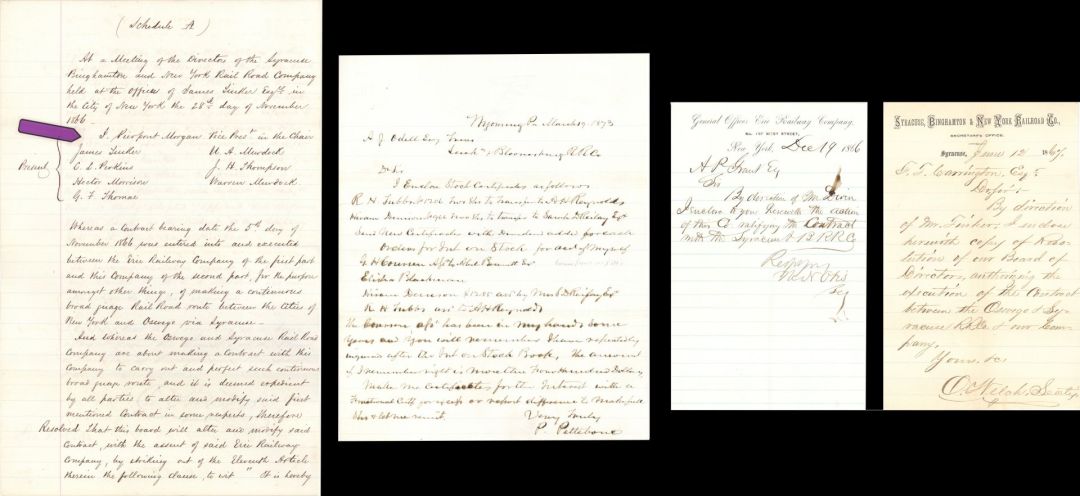 (Schedule A)
At a Meeting of the Directors of the Syracuse
Binghamton and New York Rail Road Company
held at the office of James Tinker Esqr. in
the City of New York the 28th day of November
1866
J. Pierpont Morgan Vice Prest in the Chair
James Tinker W. A. Murdock
Present
C. L. Perkins J. H. Thompson
Hector Morrison Warren Murdock
G. F. Thomae
Whereas a Contract bearing date the 5th day of
November 1866 was entered into and executed
between the Erie Railway Company of the first part
and this Company of the second part, for the purpose
amongst other things, of making a continuous
broad guage Rail Road route between the Cities of
New York and Oswego via Syracuse —
And Whereas the Oswego and Syracuse Rail Road
Company are about making a Contract with this
Company to carry out and perfect such continuous
broad guage route, and it is deemed expedient
by all parties, to alter and modify said first
mentioned Contract in some respects, therefore
Resolved That this board will alter and modify said
Contract, with the assent of said Erie Railway
Company, by striking out of the Eleventh Article
therein the following clause, to wit "It is hereby
Wyoming Pa March 19 1873
A J Odell Esq Treas
& Bloomsburg R R Co
Dr Sir
I Enclose Stock Certificates as follows
R H Tubbs to transfer to A H Reynolds
to transfer to Sarah
Send New Certificates with for each
Orders for Int on Stock for
G H Courson
Elisha Blackman
Hiram Denison
R H Tubbs to A H Reynolds
The Courson has been in my hands some
years and You will remember I have repeatedly
inquired after the Int on Stock Book, The amount
if I remember right is more than Four Hundred Dollars
Make me Certificates for the Interest with a
Fractional Cft for or report difference to Make full
let me remit.
Very Truly
P. Pettebone
General Offices Erie Railway Company.
New York, Dec 19 1866
A P. Grant Esq
Sir
By direction of Mr.
I enclose to you herewith the action
of this Co ratifying the Contract
with the Syracuse & B. R. R. Co
H N Otis
Secy
Syracuse, Binghamton & New York Railroad Co.,
SECRETARY'S OFFICE.
Syracuse, June 12 1867.
F. T. Carrington, Esqr
By direction
of Mr. Tinker, I enclose
herewith copy of Reso-
lution of our Board of
Directors, authorizing the
execution of the Contract
between the Oswego & Sy-
racuse R.R. Co. & our Com-
pany,
Yours, &c
O. Welch, Secretary